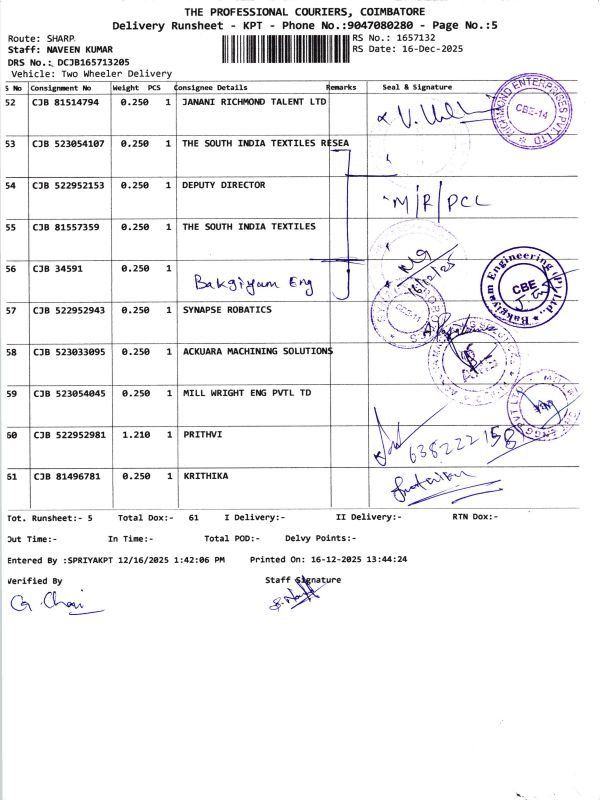 THE PROFESSIONAL COURIERS, COIMBATORE
Delivery Runsheet - KPT - Phone No.:9047080280 - Page No.:5
Route: SHARP
RS No.: 1657132
Staff: NAVEEN KUMAR
RS Date: 16-Dec-2025
DRS No.: DCJB165713205
Vehicle: Two Wheeler Delivery
S No Consignment No Weight PCS Consignee Details Remarks Seal & Signature
52 CJB 81514794 0.250 1 JANANI RICHMOND TALENT LTD
RICHMOND ENTERPRISES PVT LTD CBE-14
53 CJB 523054107 0.250 1 THE SOUTH INDIA TEXTILES RESEA
54 CJB 522952153 0.250 1 DEPUTY DIRECTOR
M/R/PCL
55 CJB 81557359 0.250 1 THE SOUTH INDIA TEXTILES
16/12/25
56 CJB 34591 0.250 1 Bakgiyam Eng
Bakgiyam Engineering (P) Ltd., CBE
57 CJB 522952943 0.250 1 SYNAPSE ROBATICS
58 CJB 523033095 0.250 1 ACKUARA MACHINING SOLUTIONS
59 CJB 523054045 0.250 1 MILL WRIGHT ENG PVTL TD
60 CJB 522952981 1.210 1 PRITHVI
638222158
61 CJB 81496781 0.250 1 KRITHIKA
Tot. Runsheet:- 5 Total Dox:- 61 I Delivery:- II Delivery:- RTN Dox:-
Out Time:- In Time:- Total POD:- Delvy Points:-
Entered By :SPRIYAKPT 12/16/2025 1:42:06 PM Printed On: 16-12-2025 13:44:24
Verified By Staff Signature